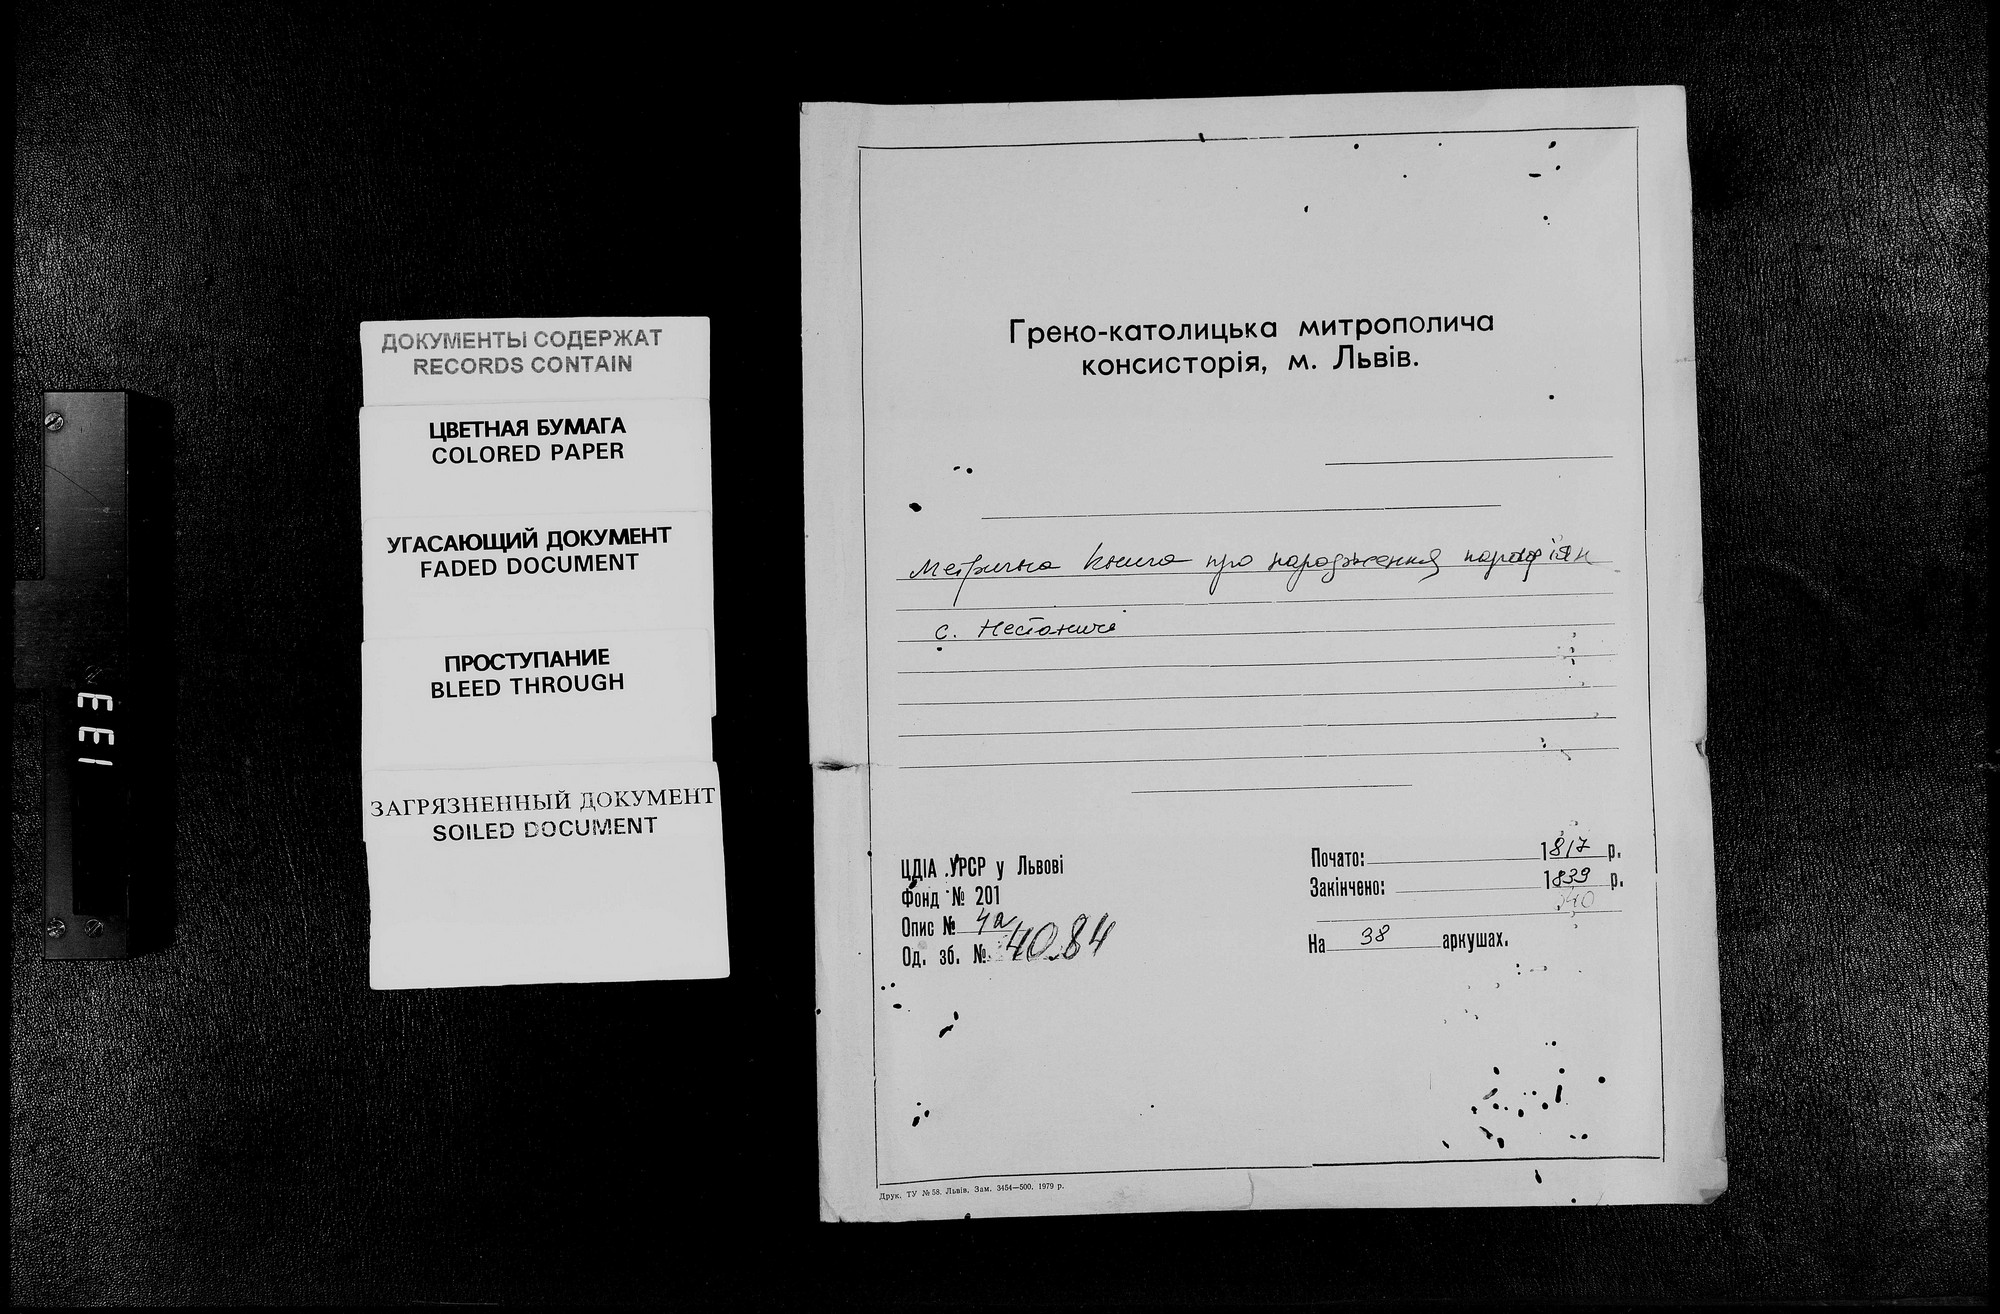 ДОКУМЕНТЫ СОДЕРЖАТ
RECORDS CONTAIN
ЦВЕТНАЯ БУМАГА
COLORED PAPER
УГАСАЮЩИЙ ДОКУМЕНТ
FADED DOCUMENT
ПРОСТУПАНИЕ
BLEED THROUGH
ЗАГРЯЗНЕННЫЙ ДОКУМЕНТ
SOILED DOCUMENT
133
Греко-католицька митрополича
консисторія, м. Львів.
Метрична книга про народження парафіян
с. Нестаничі
ЦДІА УРСР у Львові
Фонд № 201
Опис № 4а
Од. зб. № 4084
Почато: 1817 р.
Закінчено: 1839 р.
40
На 38 аркушах.
Друк. ТУ № 58. Львів. Зам. 3454—500. 1979 р.